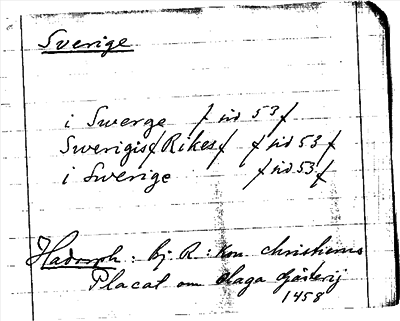 Sverige
i Swerge / sid 53 /
Swerigis / Rikes / / sid 53 /
i Swerige / sid 53 /
Hadorph: bj. R: Kon. Christierns
Placat om olaga Gästerij
1458